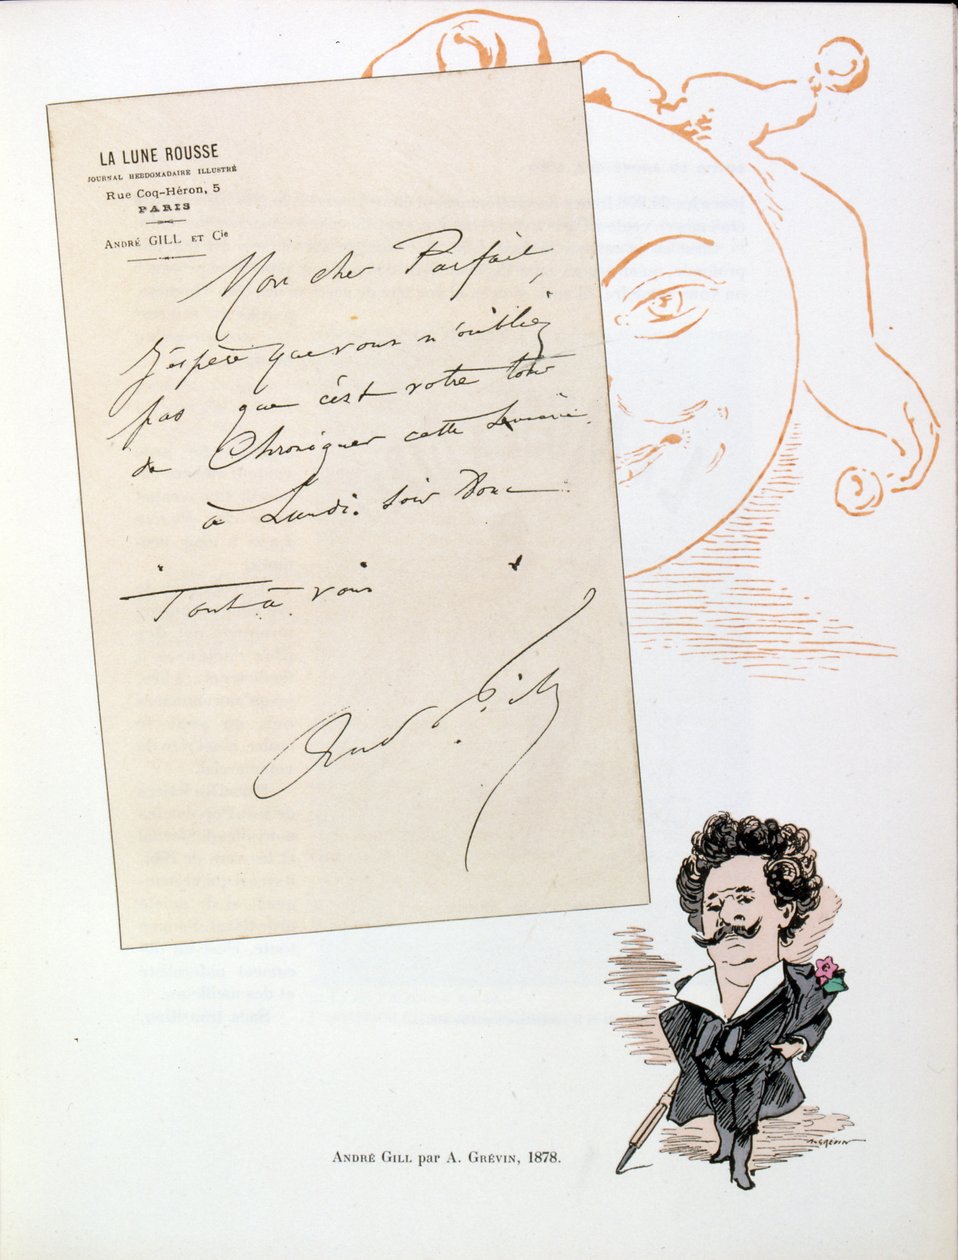 LA LUNE ROUSSE
JOURNAL HEBDOMADAIRE ILLUSTRÉ
Rue Coq-Héron, 5
PARIS
ANDRÉ GILL ET Cie
Mon cher Parfait,
J'éspère que vous n'oubliez
pas que c'est votre tour
de Chroniquer cette semaine.
à Lundi soir Donc
Tout à vous
And Gill
A. GRÉVIN
ANDRÉ GILL par A. GRÉVIN, 1878.